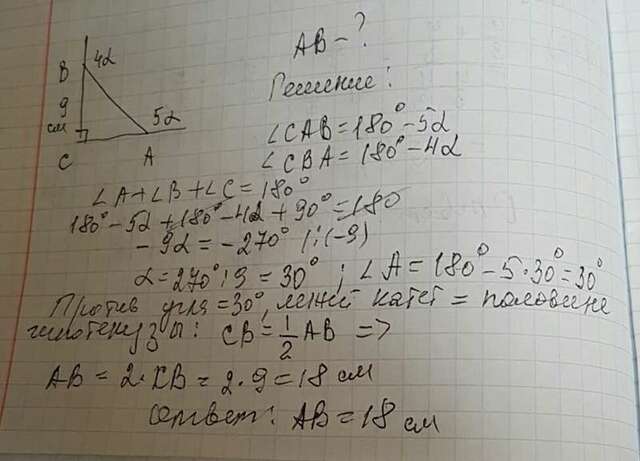 AB - ?
Решение:
B 4α
9
см
5α
C A
∠CAB = 180° - 5α
∠CBA = 180° - 4α
∠A + ∠B + ∠C = 180°
180° - 5α + 180° - 4α + 90° = 180
- 9α = - 270° | : (-9)
α = 270° : 9 = 30° ; ∠A = 180° - 5 · 30° = 30°
Против угла = 30°, лежит катет = половине
гипотенузы: CB = 1/2 AB =>
AB = 2 · CB = 2 · 9 = 18 см
Ответ: AB = 18 см